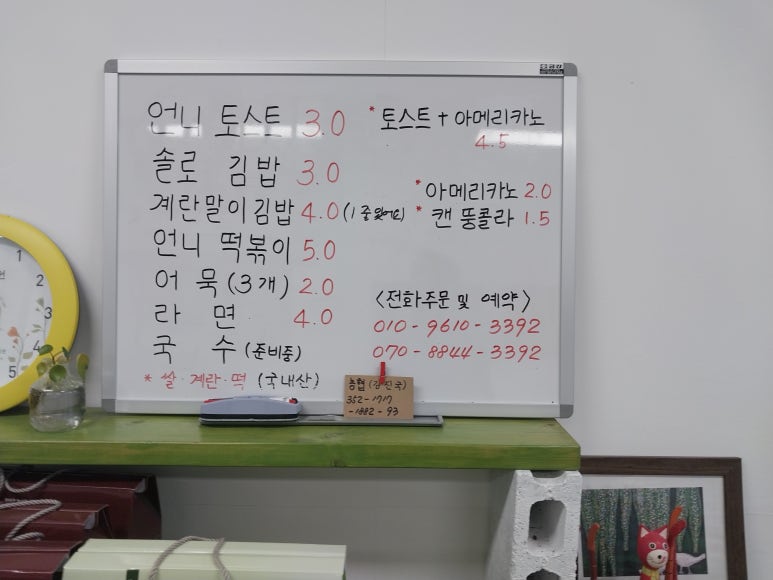 언니 토스트 3.0
솔로 김밥 3.0
계란말이김밥 4.0 (1줄
언니 떡볶이 5.0
어묵(3개) 2.0
라면 4.0
국수 (준비중)
* 쌀·계란·떡 (국내산)
* 토스트 + 아메리카노
4.5
* 아메리카노 2.0
* 캔 뚱콜라 1.5
<전화주문 및 예약>
010-9610-3392
070-8844-3392
농협 (김진국)
352-1717
-1882-93
1
2
3
4
5